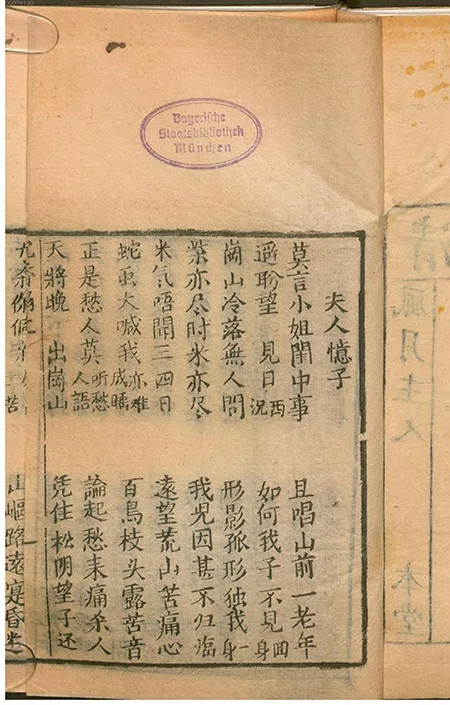 Bayerische
Staatsbibliothek
München
夫人憶子
莫言小姐閨中事 且唱山前一老年
望 見日西況 如何我子不見回身
崗山冷落無人問 形影孤形独我一身
柴亦尽时米亦尽 我児因甚不归臨
米气唔聞三四日 遠望荒山苦痛心
蛇虽大喊我亦难成睡 百鳥枝头露苦音
正是愁人莫听愁人語 論起愁来痛杀人
天將晚 出崗山 凭住松阴望子还
山嶇路遠寔昏
風月主人
本堂